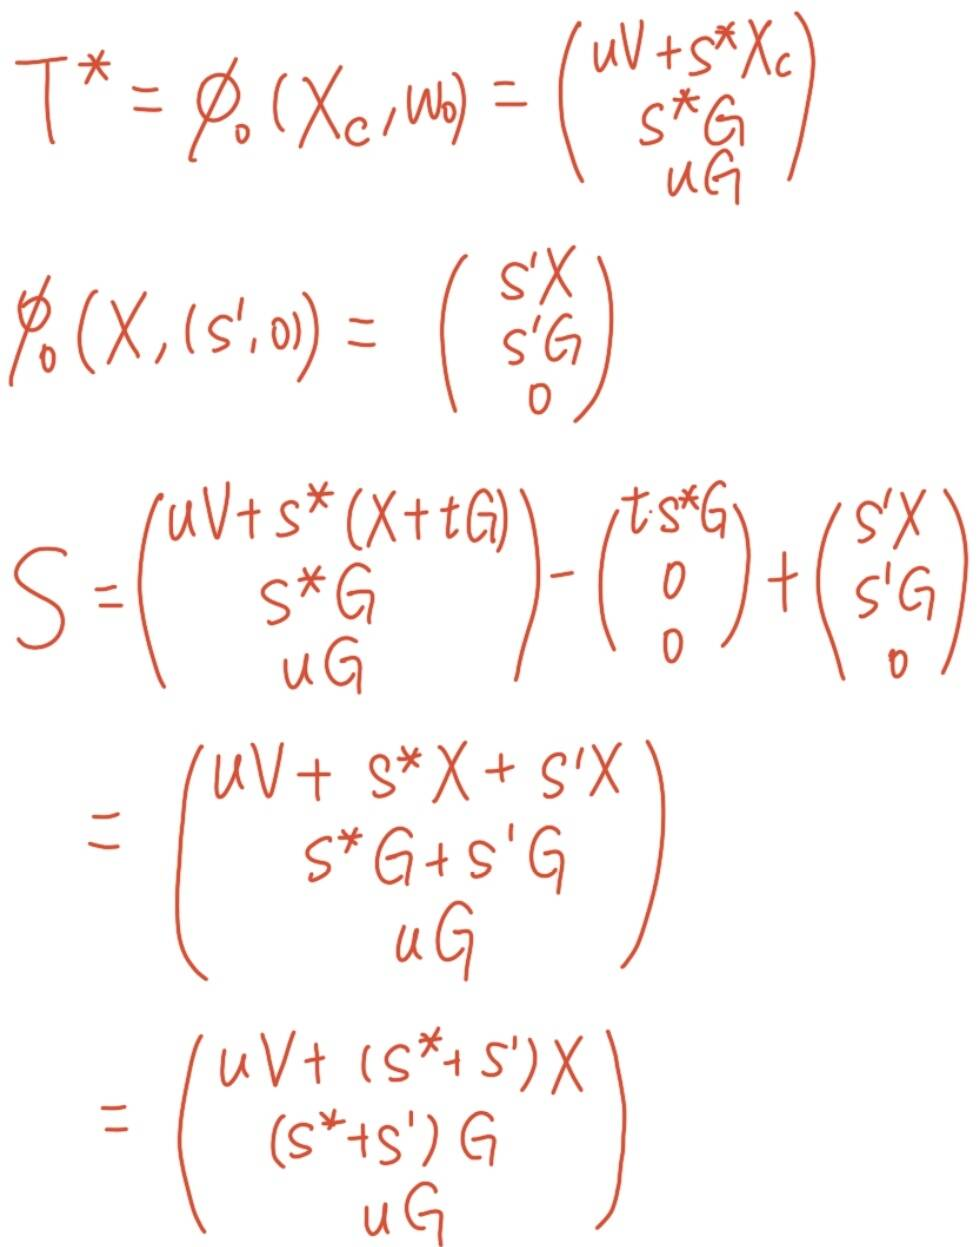 T* = ϕ₀(X_c, w₀) = (uV + s*X_c
s*G
uG)
ϕ₀(X, (s', 0)) = (s'X
s'G
0)
S = (uV + s*(X + tG)) - (t·s*G) + (s'X)
(s*G) (0) (s'G)
(uG) (0) (0)
= (uV + s*X + s'X
s*G + s'G
uG)
= (uV + (s* + s')X
(s* + s')G
uG)